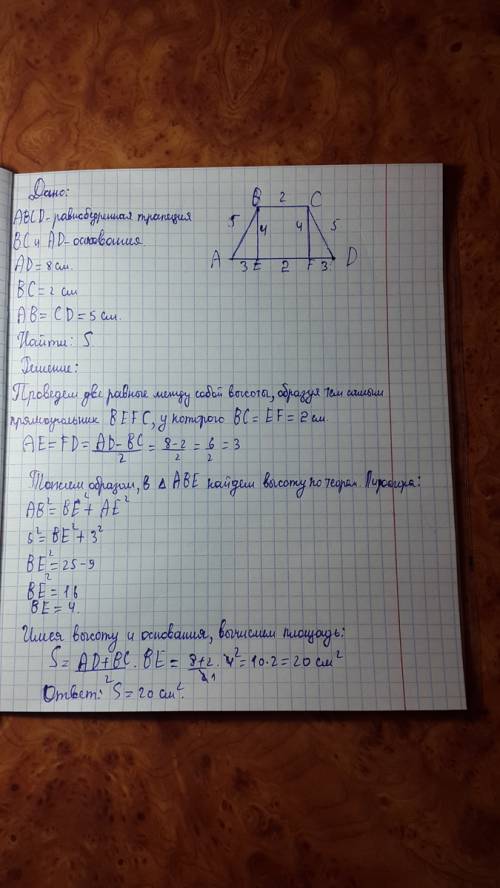 Дано:
ABCD - равнобедренная трапеция
BC и AD - основания.
AD = 8 см.
BC = 2 см
AB = CD = 5 см.
Найти: S
B 2 C
5 4 4 5
A 3 E 2 F 3 D
Решение:
Проведем две равные между собой высоты, образуя тем самым
прямоугольник BEFC, у которого BC = EF = 2 см.
AE = FD = (AD - BC)/2 = (8-2)/2 = 6/2 = 3
Таким образом, в △ ABE найдем высоту по теорем. Пифагора:
AB² = BE² + AE²
5² = BE² + 3²
BE² = 25 - 9
BE² = 16
BE = 4.
Имея высоту и основания, вычислим площадь:
S = (AD + BC)/2 · BE = (8+2)/2 1 · 4 2 = 10 · 2 = 20 см²
Ответ: S = 20 см².